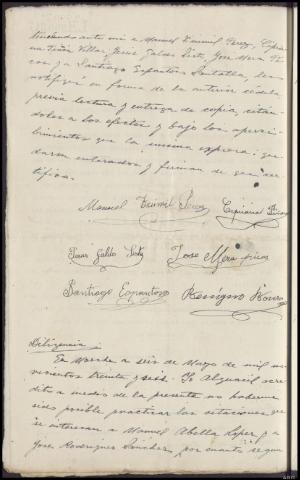 teniendo ante mi a Manuel Tziomil Perez, Cipria-
na Villar, Jesus Galdo Sixto, Jose Mera Pi-
cos, y a Santiago Espantoso les
notifiqué en forma de la anterior cédula
previa lectura y entrega de copia, citán-
dolos a los efectos y bajo los apercibi-
bimientos que la misma expresa: que-
daron enterados y firman de que cer-
tifico.
Manuel Perez Cipriano
Jesus Galdo Sixto Jose Mera Picos
Santiago Espantoso Benigno
Diligencia
En a seis de Mayo de mil no-
vecientos treinta y seis. Yo Alguacil acre-
dito a medio de la presente no haberme
sido posible practicar las citaciones que
se interesan a Manuel Abella Lopez y a
Jose Rodriguez Sanchez, por cuanto segun